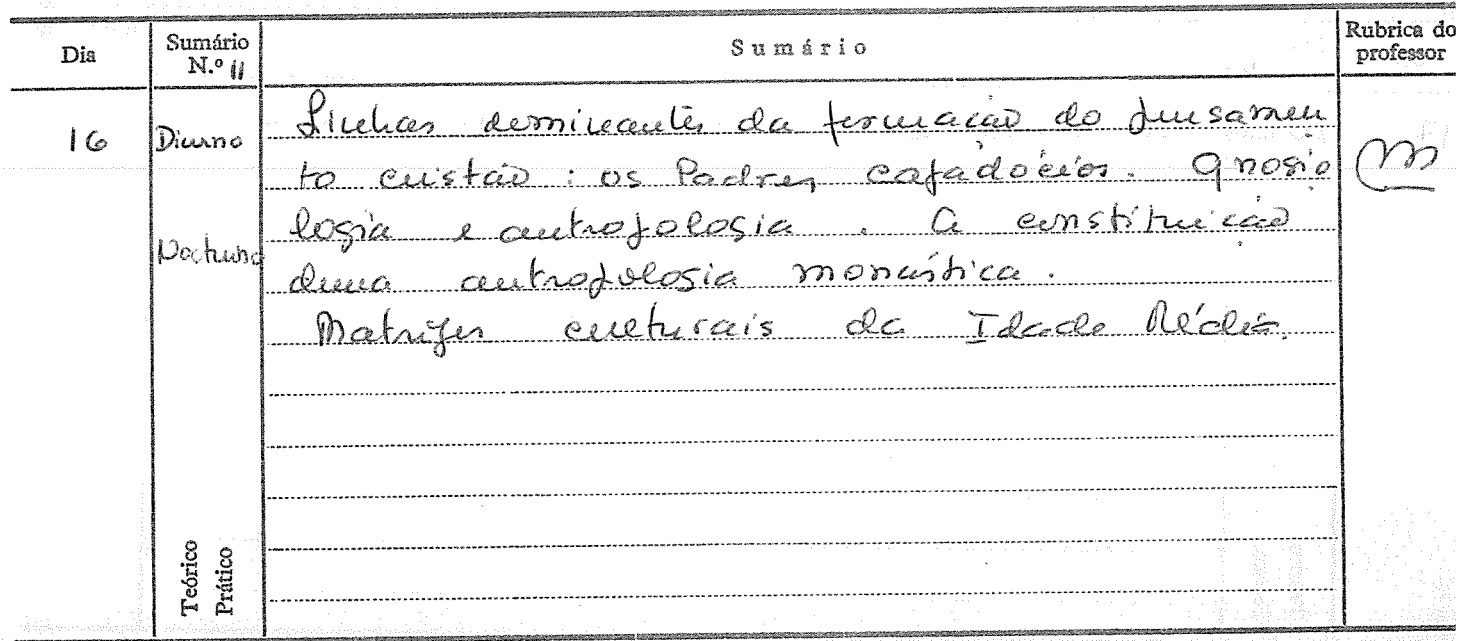 Dia
Sumário
N.º 11
Sumário
Rubrica do
professor
16
Diurno
Nocturno
Linhas dominantes da formação do pensamen
to cristão : os Padres capadócios. Gnosio
logia e antropologia . A constituição
duma antropologia monástica.
Matrizes culturais da Idade Média.
Teórico
Prático